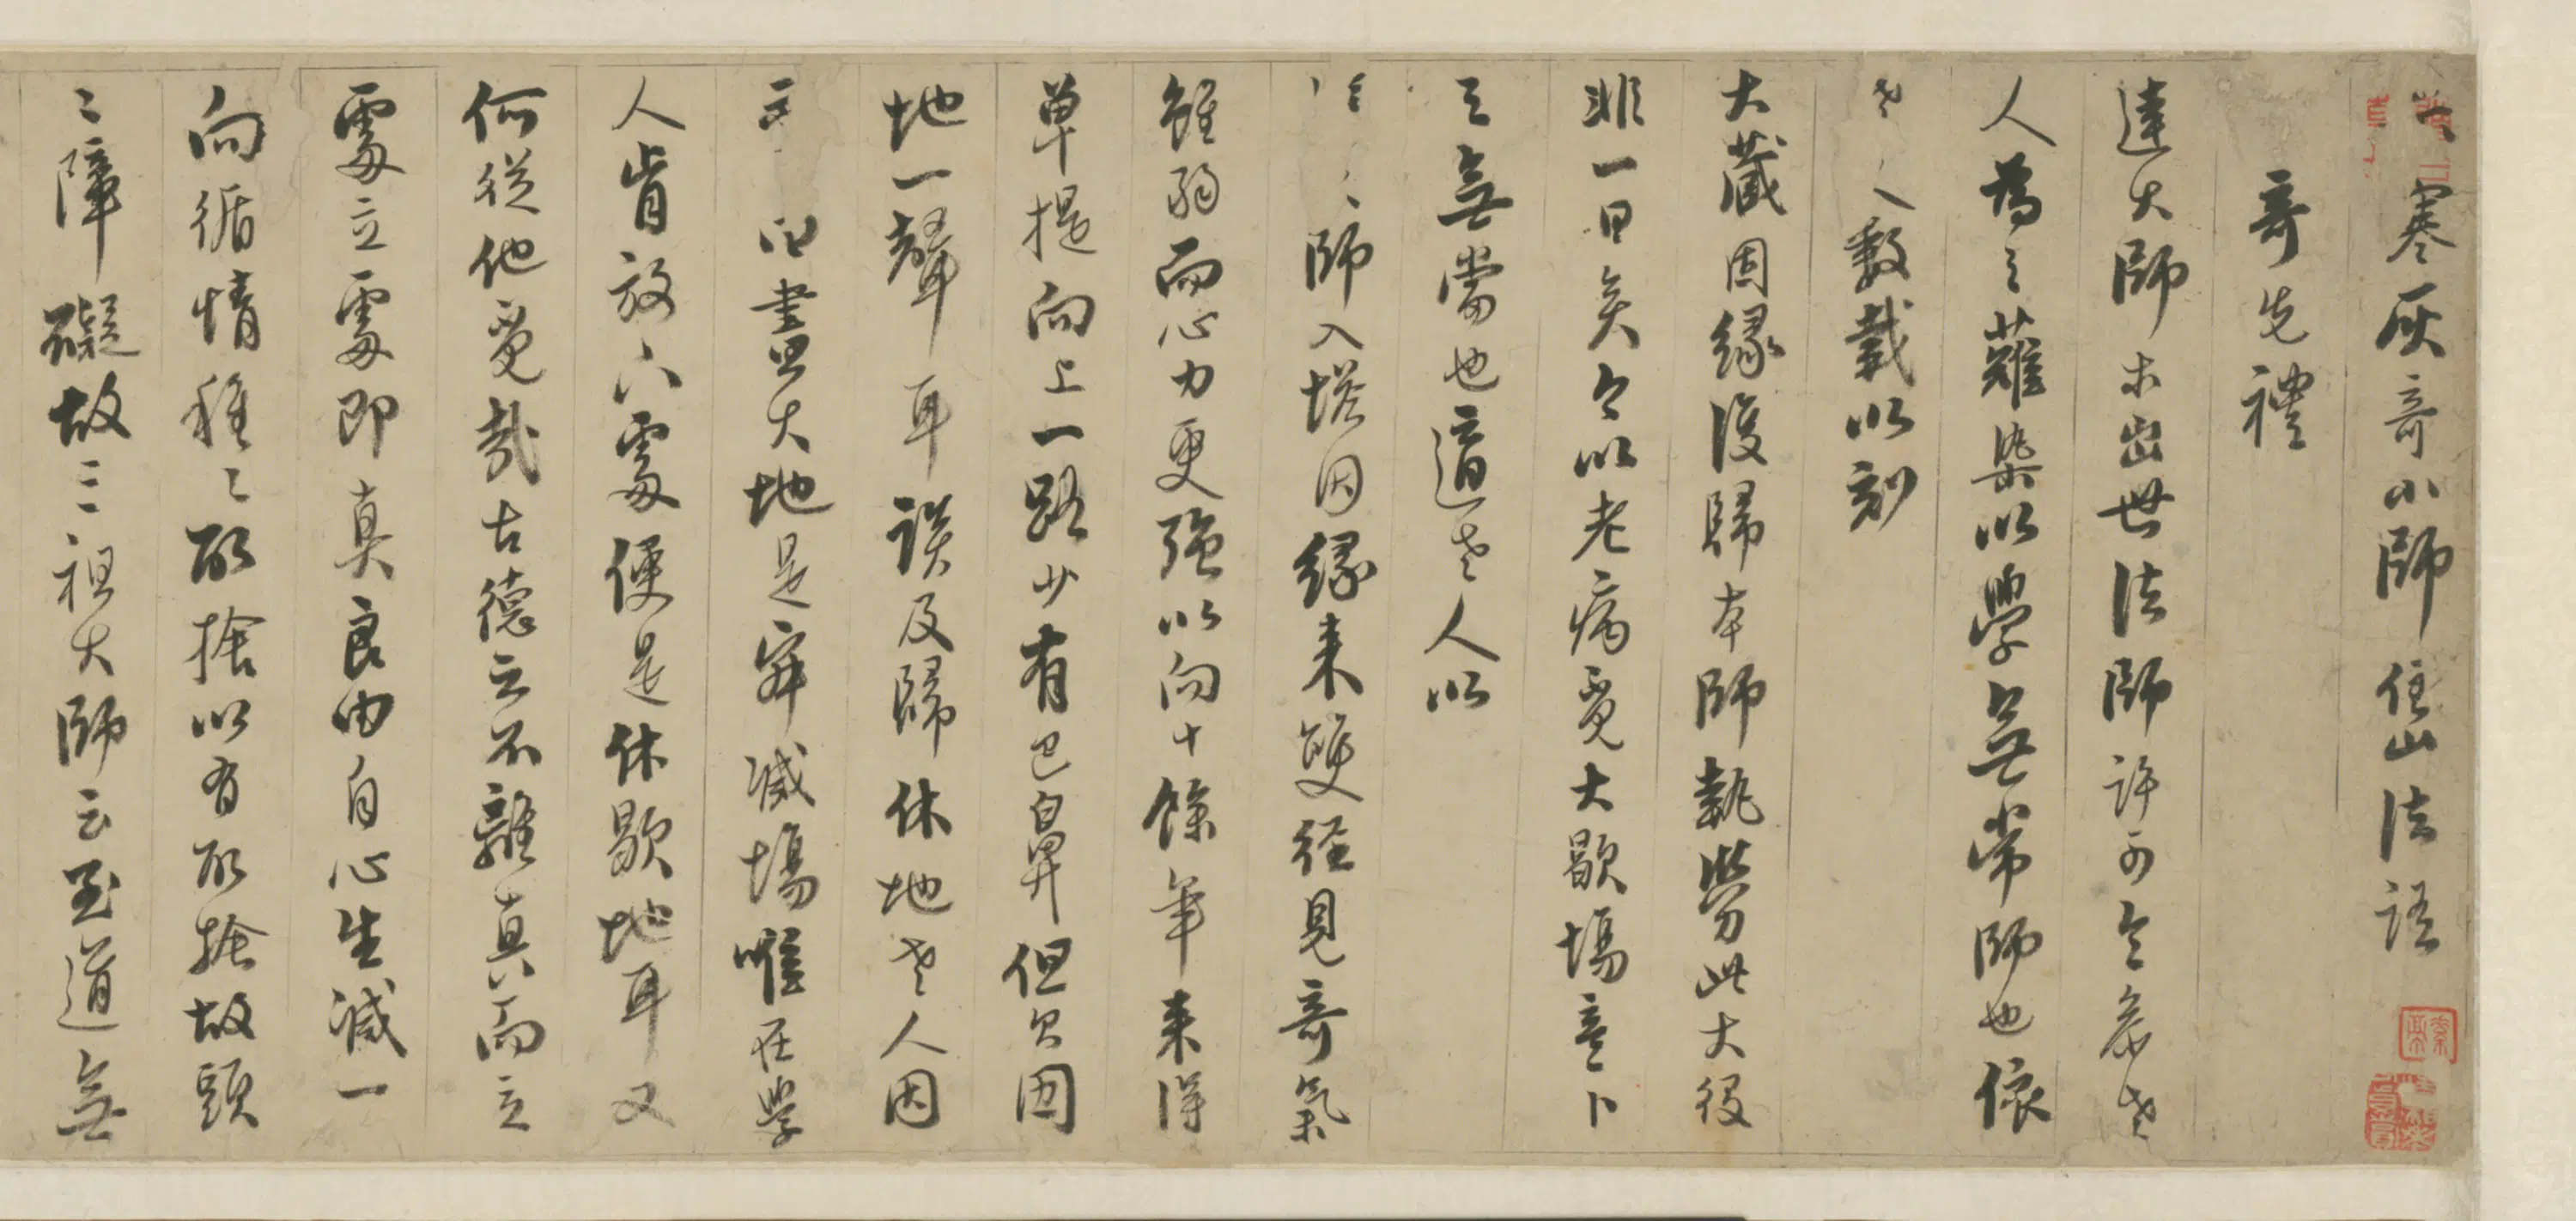 寒灰奇小師住山法語
奇先禮
達大師未出世法師許可令參老
人為之薙染以學無常師也依
老人數載以刻
大藏因緣復歸本師執勞此大役
非一日矣今以老病覓大歇場意卜
之無當也適老人以
師入塔因緣來雙徑見奇氣
雖弱而心力更強以向十餘年來得
單提向上一路少有巴鼻但欠因
地一聲耳談及歸休地老人因
盡大地是寂滅場唯在學
人肯放六處便是休歇地耳又
何從他覓哉古德云不離真而立
處立處即真良由自心生滅一
向循情種種取捨以有取捨故頭
頭障礙故三祖大師云至道無